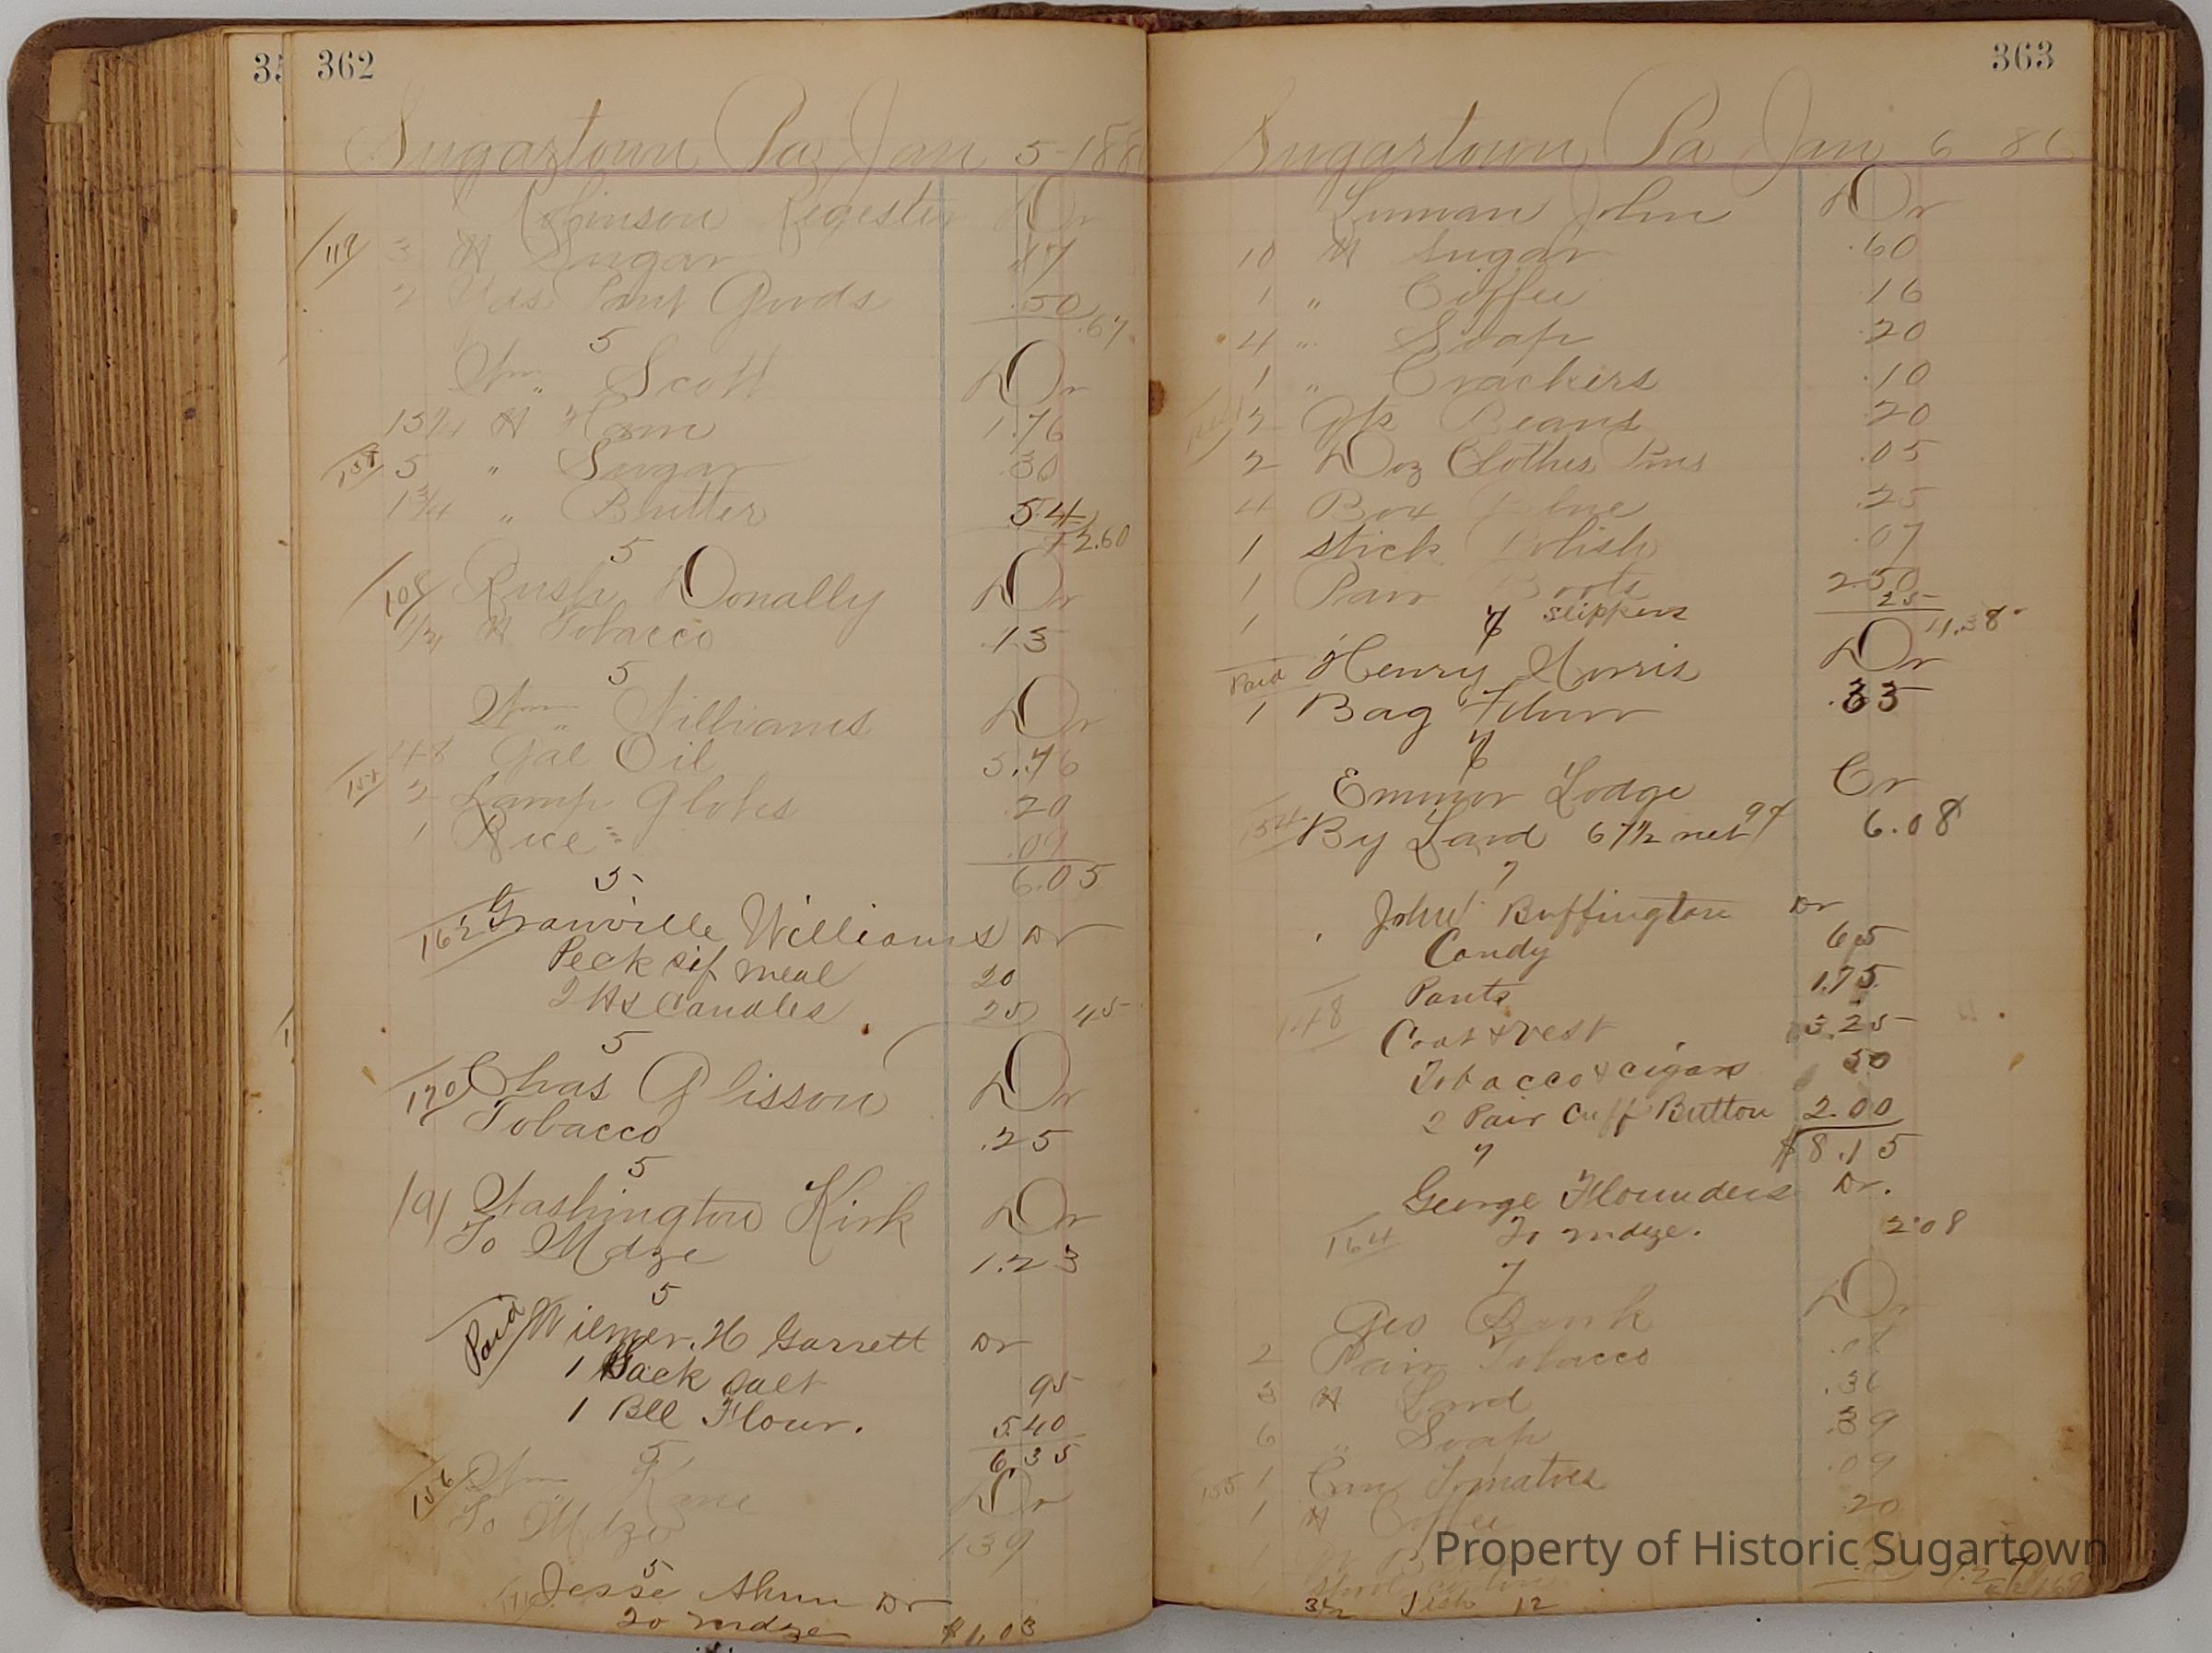 362
Sugartown Pa Jan 5 188
Robinson Regester Dr
3 # Sugar .17
2 Yds Pant Goods .50 .67
5
Wm Scott Dr
15 1/4 # Ham 1.76
5 " Sugar .30
1 3/4 " Butter 54
2.60
5
108 Rush Donally Dr
# Tobacco .15
5
Wm Williams Dr
48 Gal Oil 5.76
2 Lamp Globes .20
1 Rice .09
6.05
5
162 Granville Williams Dr
Peck sif meal 20
2 #s Candles 25 45
5
170 Chas Glisson Dr
Tobacco .25
5
191 Washington Kirk Dr
To Mdze 1.23
5
Paid Wilmer. H Garrett Dr
1 Sack Salt 95
1 Bll Flour. 5.40
6.35
5
156 Wm Kane Dr
To Mdze 1.39
5
Jesse Dr
To mdze $1.03
363
Sugartown Pa Jan 6 86
John Dr
10 # Sugar .60
1 " Coffee .16
4 " Soap .20
1 " Crackers .10
2 Qts Beans .20
2 Doz Clothes Pins .05
4 Box Blue .25
1 Stick Polish .07
1 Pair Boots 2.50
1 " Slippers 25
4.38
6
Paid Henry Norris Dr
1 Bag Flour .35
6
Emmor Lodge Cr
154 By Lard 67 1/2 net 9¢ 6.08
7
John Buffington Dr
Candy 65
148 Pants 1.75
Coat & vest 3.25
Tobacco & cigars 50
2 Pair Cuff Button 2.00
$8.15
7
George Flounders Dr.
164 To mdze. 2.08
7
Geo Dr
2 Pair Tobacco .08
3 # Lard .36
6 " Soap .39
155 1 Can Tomatoes .09
1 # Coffee 20
3 1/2 Fish 12
Property of Historic Sugartown